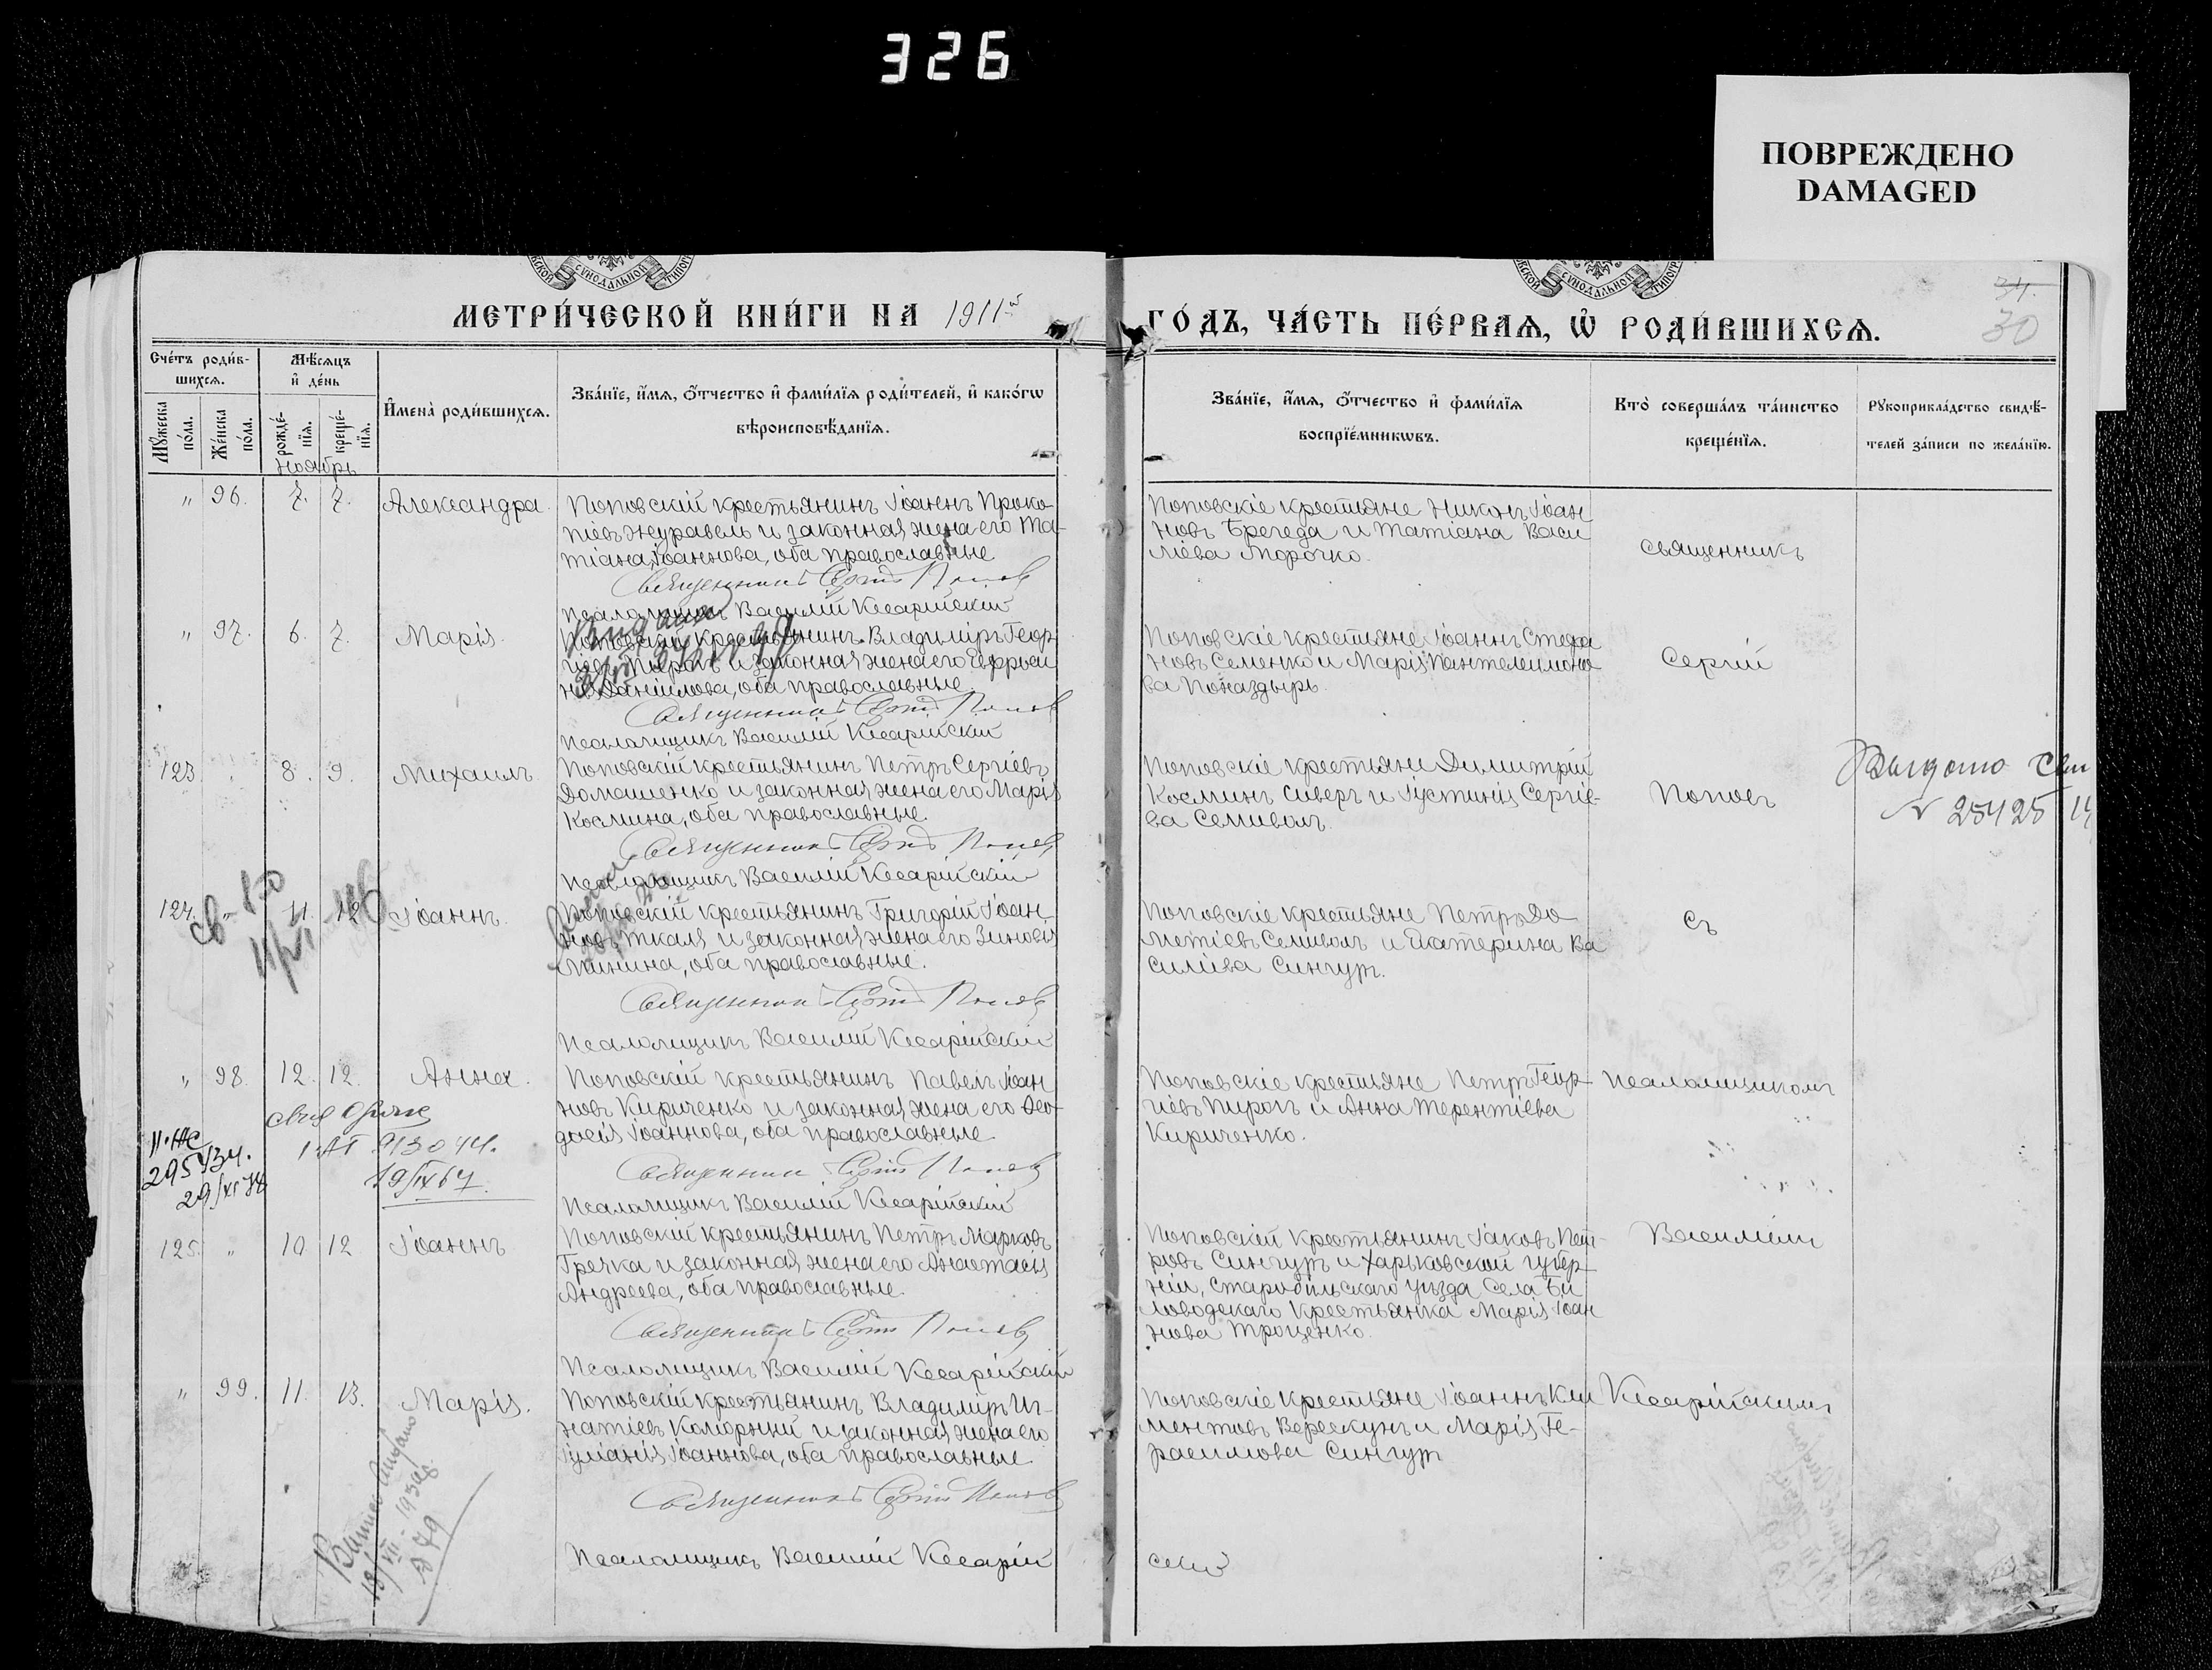 326
ПОВРЕЖДЕНО
DAMAGED
МЕТРИ́ЧЕСКОЙ КНИ́ГИ НА 1911й
ГО́ДЪ, ЧА́СТЬ ПЕ́РВАѦ, Ѡ҆ РОДИ́ВШИХСѦ.
30
Сче́тъ роди́в-
шихсѧ.
Мѣ́сѧцъ
и҆ де́нь
Мꙋ́жеска
по́ла.
Же́нска
по́ла.
рожде́-
нїѧ.
креще́-
нїѧ.
И҆мена̀ роди́вшихсѧ.
Зва́нїе, и҆́мѧ, ѻ҆́тчество и҆ фами́лїѧ роди́телей, и҆ како́гѡ
вѣроисповѣ́данїѧ.
Зва́нїе, и҆́мѧ, ѻ҆́тчество и҆ фами́лїѧ
воспрїе́мникѡвъ.
Кто̀ соверша́лъ та́инство
креще́нїѧ.
Рꙋкоприкла́дство свидѣ́-
телей за́писи по жела́нїю.
Ноябрь
" 96. 7. 7. Александра.
Поповскій крестьянинъ Іоаннъ Проко-
піевъ Журавель и законная жена его Та-
тіана Іоаннова, оба православные
Священникъ Сергій Поповъ
Псаломщикъ Василій Кесарійскій
Поповскіе крестьяне Никонъ Іоан
новъ Брегеда и Татіана Васи
ліева Морочко.
Священникъ
" 97. 6. 7. Марія.
Поповскій крестьянинъ Владиміръ Геор-
гіевъ Пирогъ и законная жена его Евфроси
нія Даниилова, оба православные.
Священникъ Сергій Поповъ
Псаломщикъ Василій Кесарійскій
Поповскіе крестьяне Іоаннъ Стефа
новъ Семенко и Марія Пантелеимоно
ва Поназдырь.
Сергій
123. " 8. 9. Михаилъ
Поповскій крестьянинъ Петръ Сергіевъ
Домашенко и законная жена его Марія
Космина, оба православные.
Священникъ Сергій Поповъ
Псаломщикъ Василій Кесарійскій
Поповскіе крестьяне Димитрій
Косминъ Сиверъ и Іустинія Сергіе-
ва Семиволъ.
Поповъ
Выдано Сви
№ 25425
124. " 11. 12 Іоаннъ.
Поповскій крестьянинъ Григорій Іоан-
новъ Ткаля и законная жена его Зиновія
Минина, оба православные.
Священникъ Сергій Поповъ
Псаломщикъ Василій Кесарійскій
Поповскіе крестьяне Петръ До
метіевъ Семиволъ и Екатерина Ва
силіева Сингуръ.
Съ
" 98. 12. 12. Анна.
Поповскій крестьянинъ Павелъ Іоан
новъ Кириченко и законная жена его Ѳео-
досія Іоаннова, оба православные.
Священникъ Сергій Поповъ
Псаломщикъ Василій Кесарійскій
Поповскіе крестьяне Петръ Геор-
гіевъ Пирогъ и Анна Терентіева
Кириченко.
Псаломщикомъ
913044.
19/IX 67.
II-ЖС
295434.
125. " 10 12 Іоаннъ
Поповскій крестьянинъ Петръ Марковъ
Гречка и законная жена его Анастасія
Андреева, оба православные.
Священникъ Сергій Поповъ
Псаломщикъ Василій Кесарійскій
Поповскій крестьянинъ Іаковъ Пет-
ровъ Сингуръ и Харьковской губер-
ніи, Старобѣльскаго уѣзда Села Бѣ
ловодскаго крестьянка Марія Іоан
нова Троценко.
Василіемъ
" 99. 11. 13. Марія.
Поповскій крестьянинъ Владиміръ Иг-
натіевъ Коморный и законная жена его
Іуліанія Іоаннова, оба православные.
Священникъ Сергій Поповъ
Псаломщикъ Василій Кесарій
скій
Поповскіе крестьяне Іоаннъ Кли
ментовъ Верескунъ и Марія Ге-
расимова Сингуръ
Кесарійскимъ